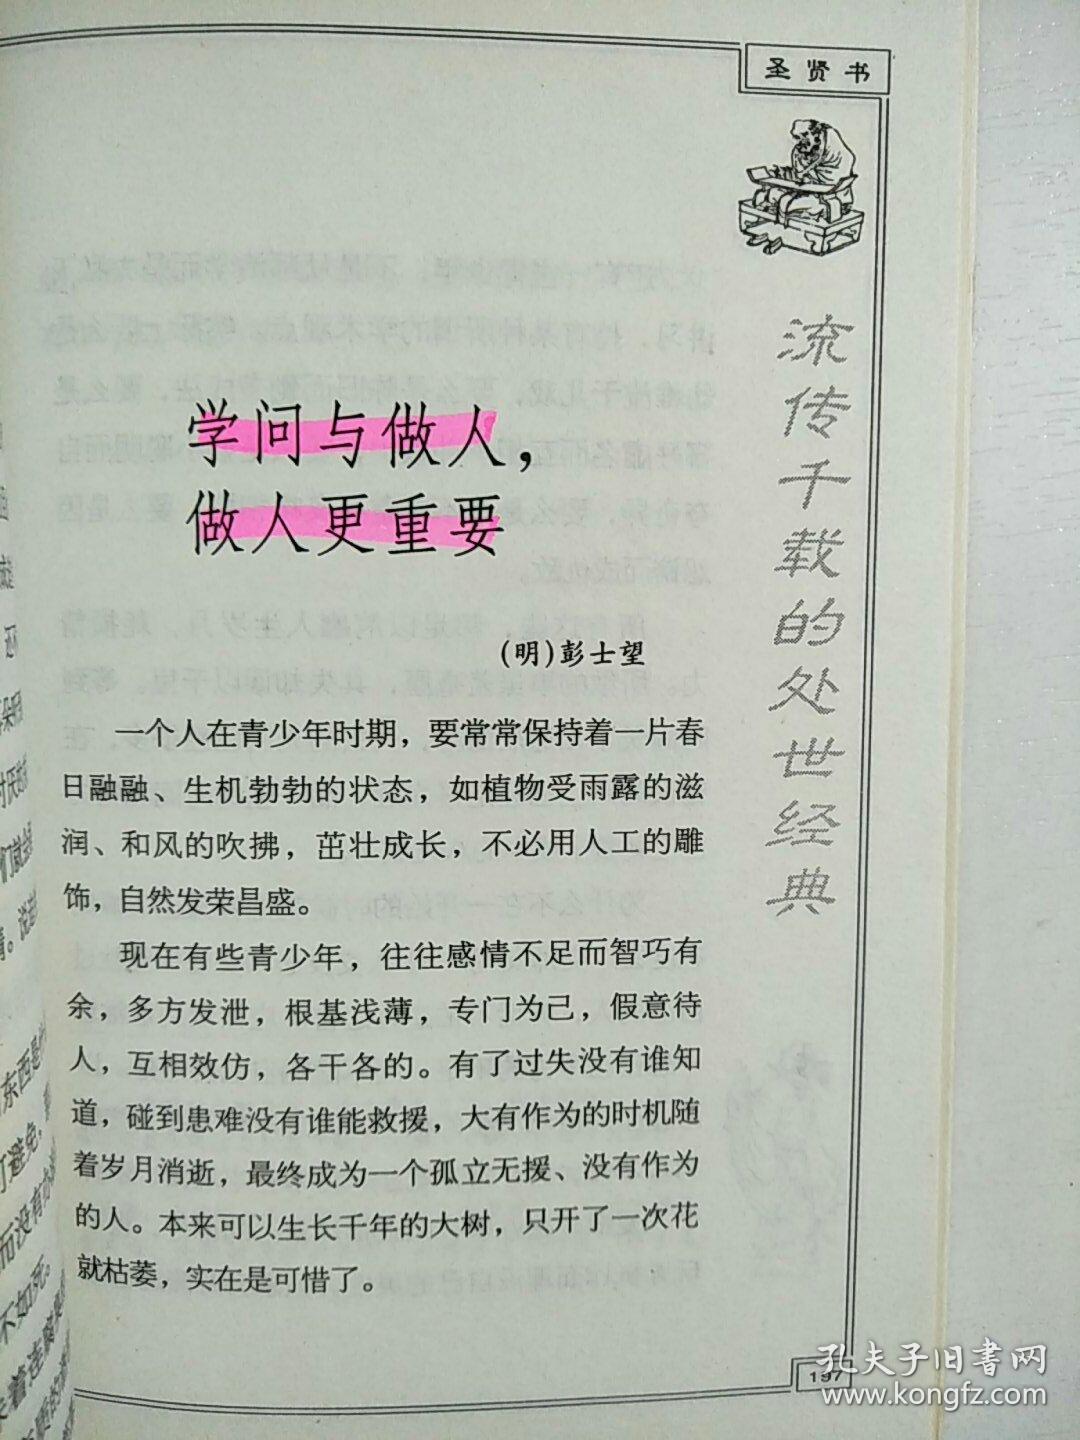 圣贤书
流传千载的处世经典
学问与做人，
做人更重要
(明)彭士望
一个人在青少年时期，要常常保持着一片春
日融融、生机勃勃的状态，如植物受雨露的滋
润、和风的吹拂，茁壮成长，不必用人工的雕
饰，自然发荣昌盛。
现在有些青少年，往往感情不足而智巧有
余，多方发泄，根基浅薄，专门为己，假意待
人，互相效仿，各干各的。有了过失没有谁知
道，碰到患难没有谁能救援，大有作为的时机随
着岁月消逝，最终成为一个孤立无援、没有作为
的人。本来可以生长千年的大树，只开了一次花
就枯萎，实在是可惜了。
197
孔夫子旧书网
www.kongfz.com